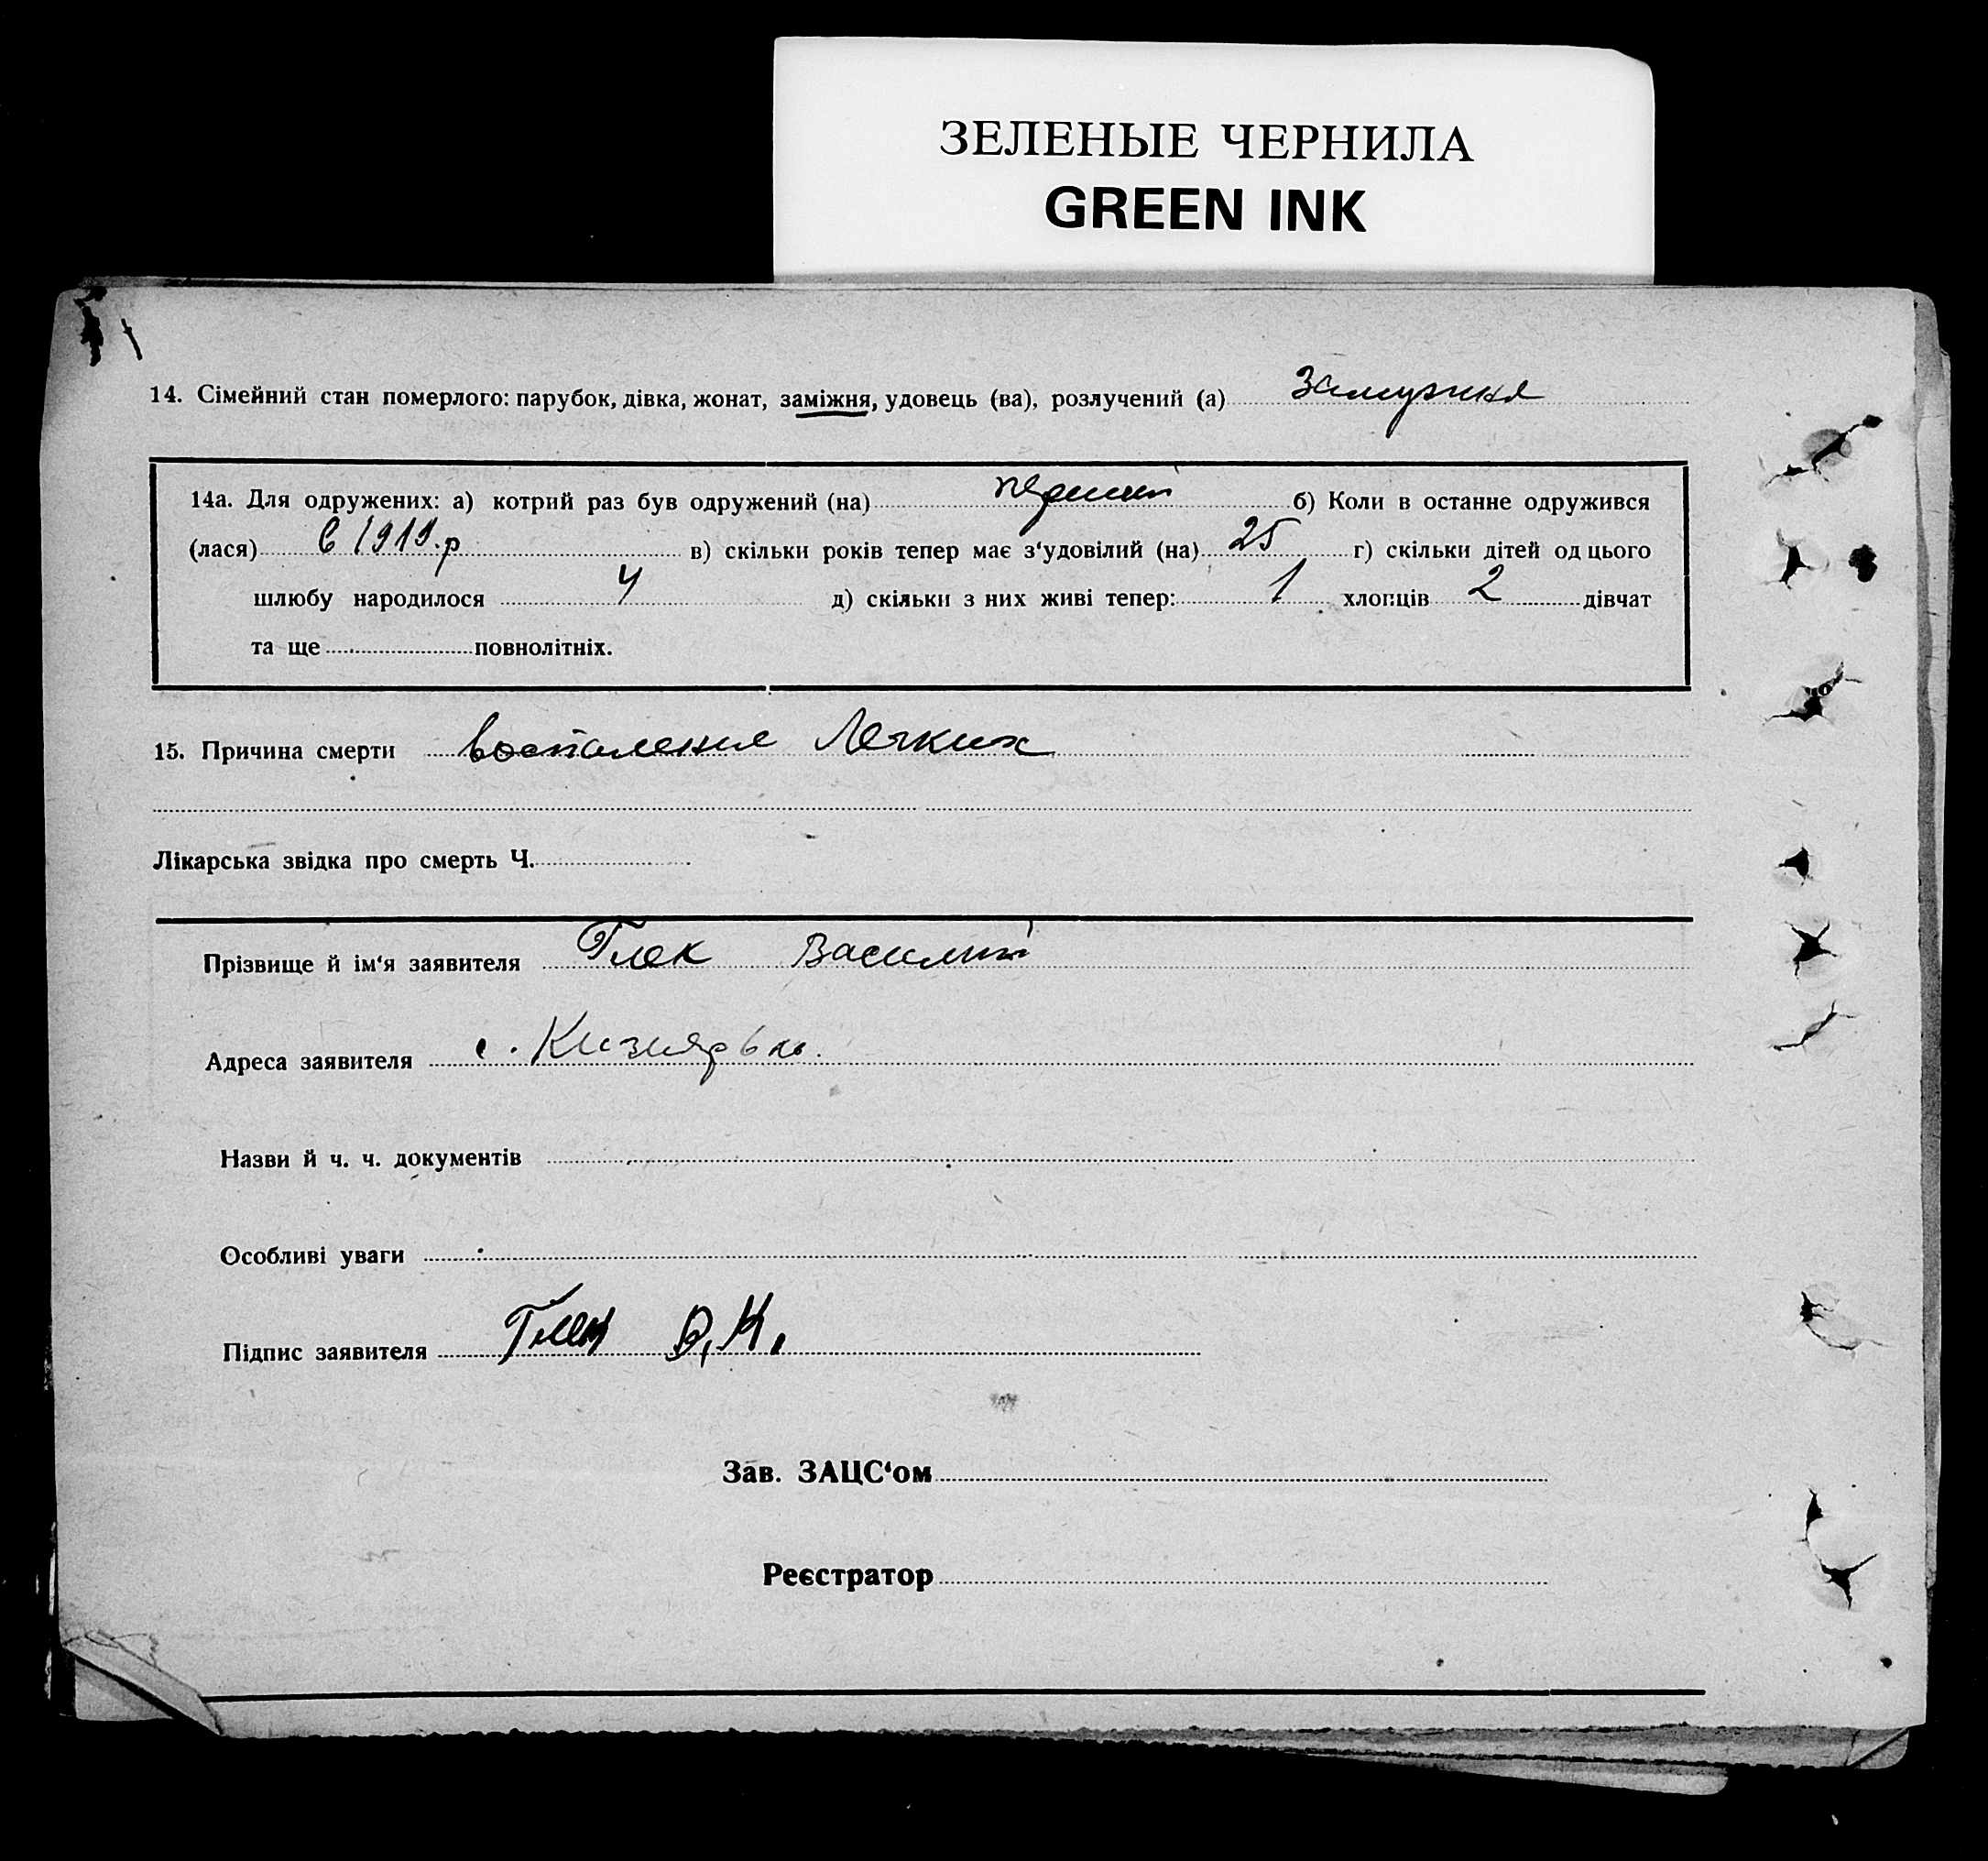 ЗЕЛЕНЫЕ ЧЕРНИЛА
GREEN INK
14. Сімейний стан померлого: парубок, дівка, жонат, заміжня, удовець (ва), розлучений (а) Замужня
14а. Для одружених: а) котрий раз був одружений (на) перший б) Коли в останнє одружився
(лася) в 1919 р в) скільки років тепер має з‘удовілий (на) 25 г) скільки дітей од цього
шлюбу народилося 4 д) скільки з них живі тепер: 1 хлопців 2 дівчат
та ще повнолітніх.
15. Причина смерти воспаление Легких
Лікарська звідка про смерть Ч.
Прізвище й ім‘я заявителя Глек Василий
Адреса заявителя с.
Назви й ч. ч. документів
Особливі уваги
Підпис заявителя Глек
Зав. ЗАЦС‘ом
Реєстратор